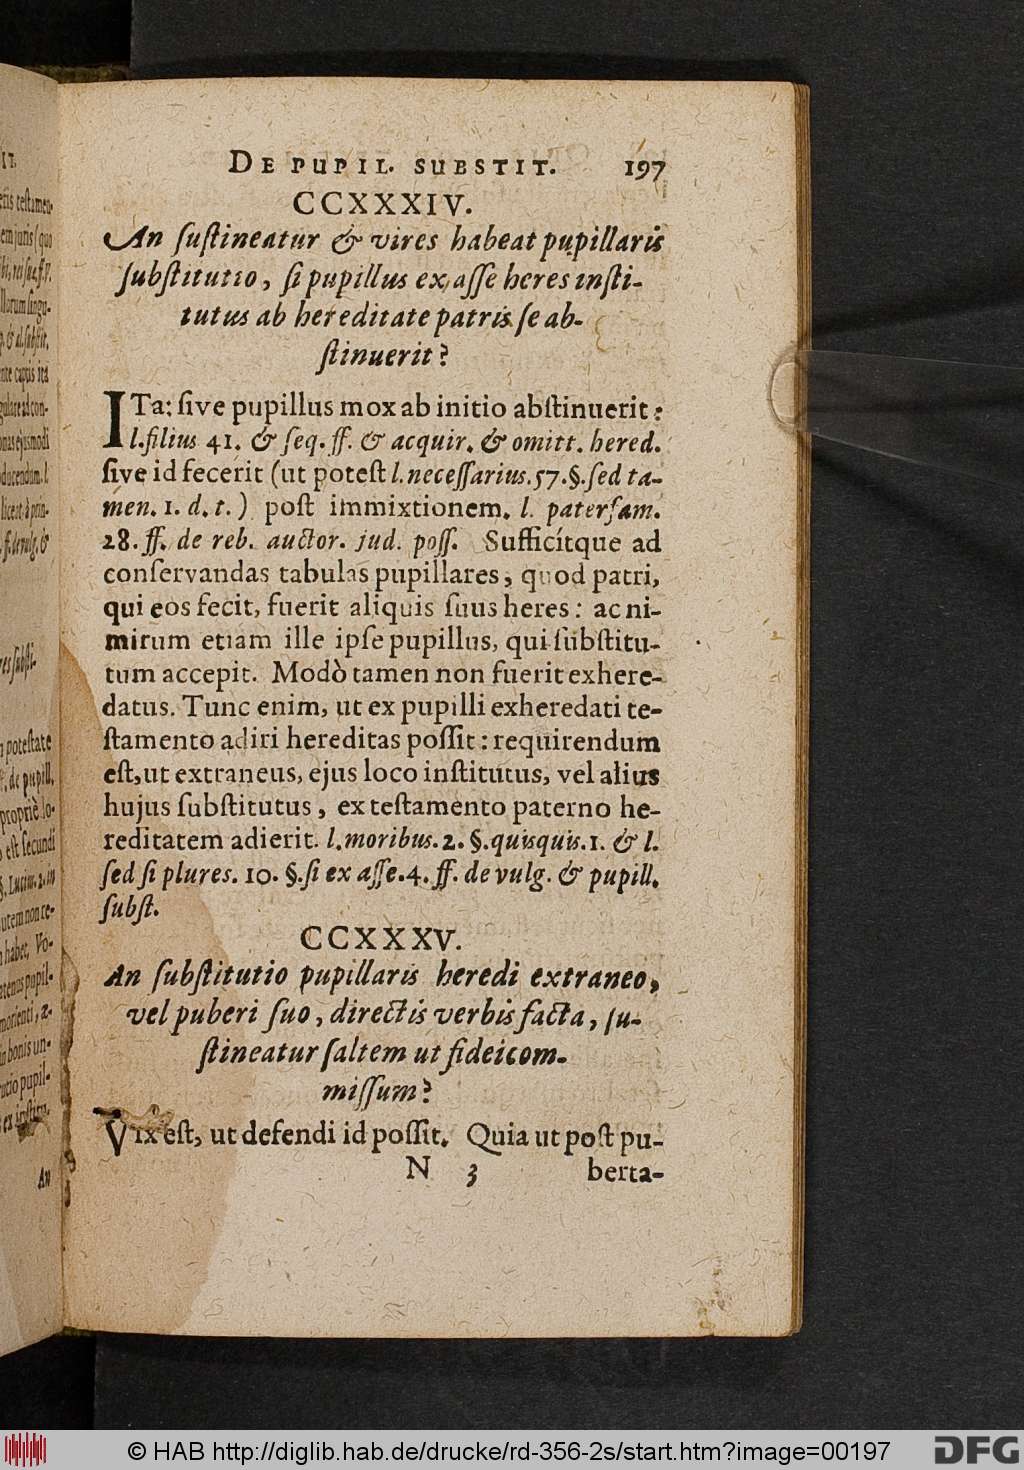 DE PUPIL. SUBSTIT. 197
CCXXXIV.
An ſuſtineatur & vires habeat pupillaris
ſubſtitutio, ſi pupillus ex aſſe heres inſti-
tutus ab hereditate patris ſe ab-
ſtinuerit?
ITa: ſive pupillus mox ab initio abſtinuerit:
l. filius 41. & ſeq. ff. & acquir. & omitt. hered.
ſive id fecerit (ut poteſt l. neceſſarius. 57. §. ſed ta-
men. 1. d. t.) poſt immixtionem. l. paterfam.
28. ff. de reb. auctor. jud. poſſ. Sufficítque ad
conſervandas tabulas pupillares, quod patri,
qui eos fecit, fuerit aliquis ſuus heres: ac ni-
mirum etiam ille ipſe pupillus, qui ſubſtitu-
tum accepit. Modò tamen non fuerit exhere-
datus. Tunc enim, ut ex pupilli exheredati te-
ſtamento adiri hereditas poſſit: requirendum
eſt, ut extraneus, ejus loco inſtitutus, vel alius
hujus ſubſtitutus, ex teſtamento paterno he-
reditatem adierit. l. moribus. 2. §. quisquis. 1. & l.
ſed ſi plures. 10. §. ſi ex aſſe. 4. ff. de vulg. & pupill.
ſubſt.
CCXXXV.
An ſubſtitutio pupillaris heredi extraneo,
vel puberi ſuo, directis verbis facta, ſu-
ſtineatur ſaltem ut fideicom-
miſſum?
Vix eſt, ut defendi id poſſit. Quia ut poſt pu-
N 3 berta-
© HAB http://diglib.hab.de/drucke/rd-356-2s/start.htm?image=00197
DFG